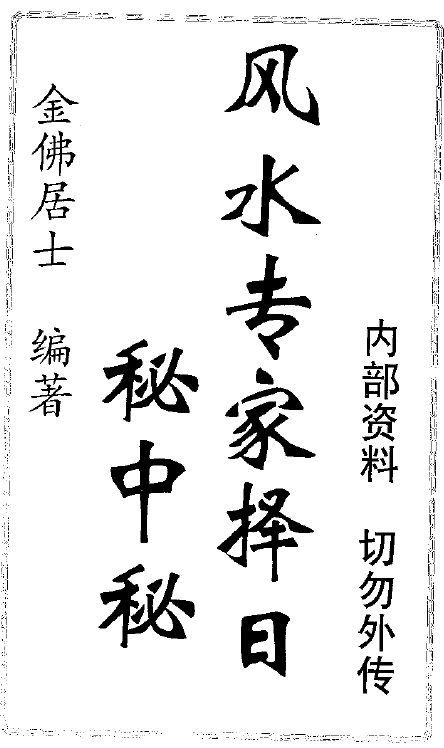 内部资料 切勿外传
风水专家择日
秘中秘
金佛居士 编著